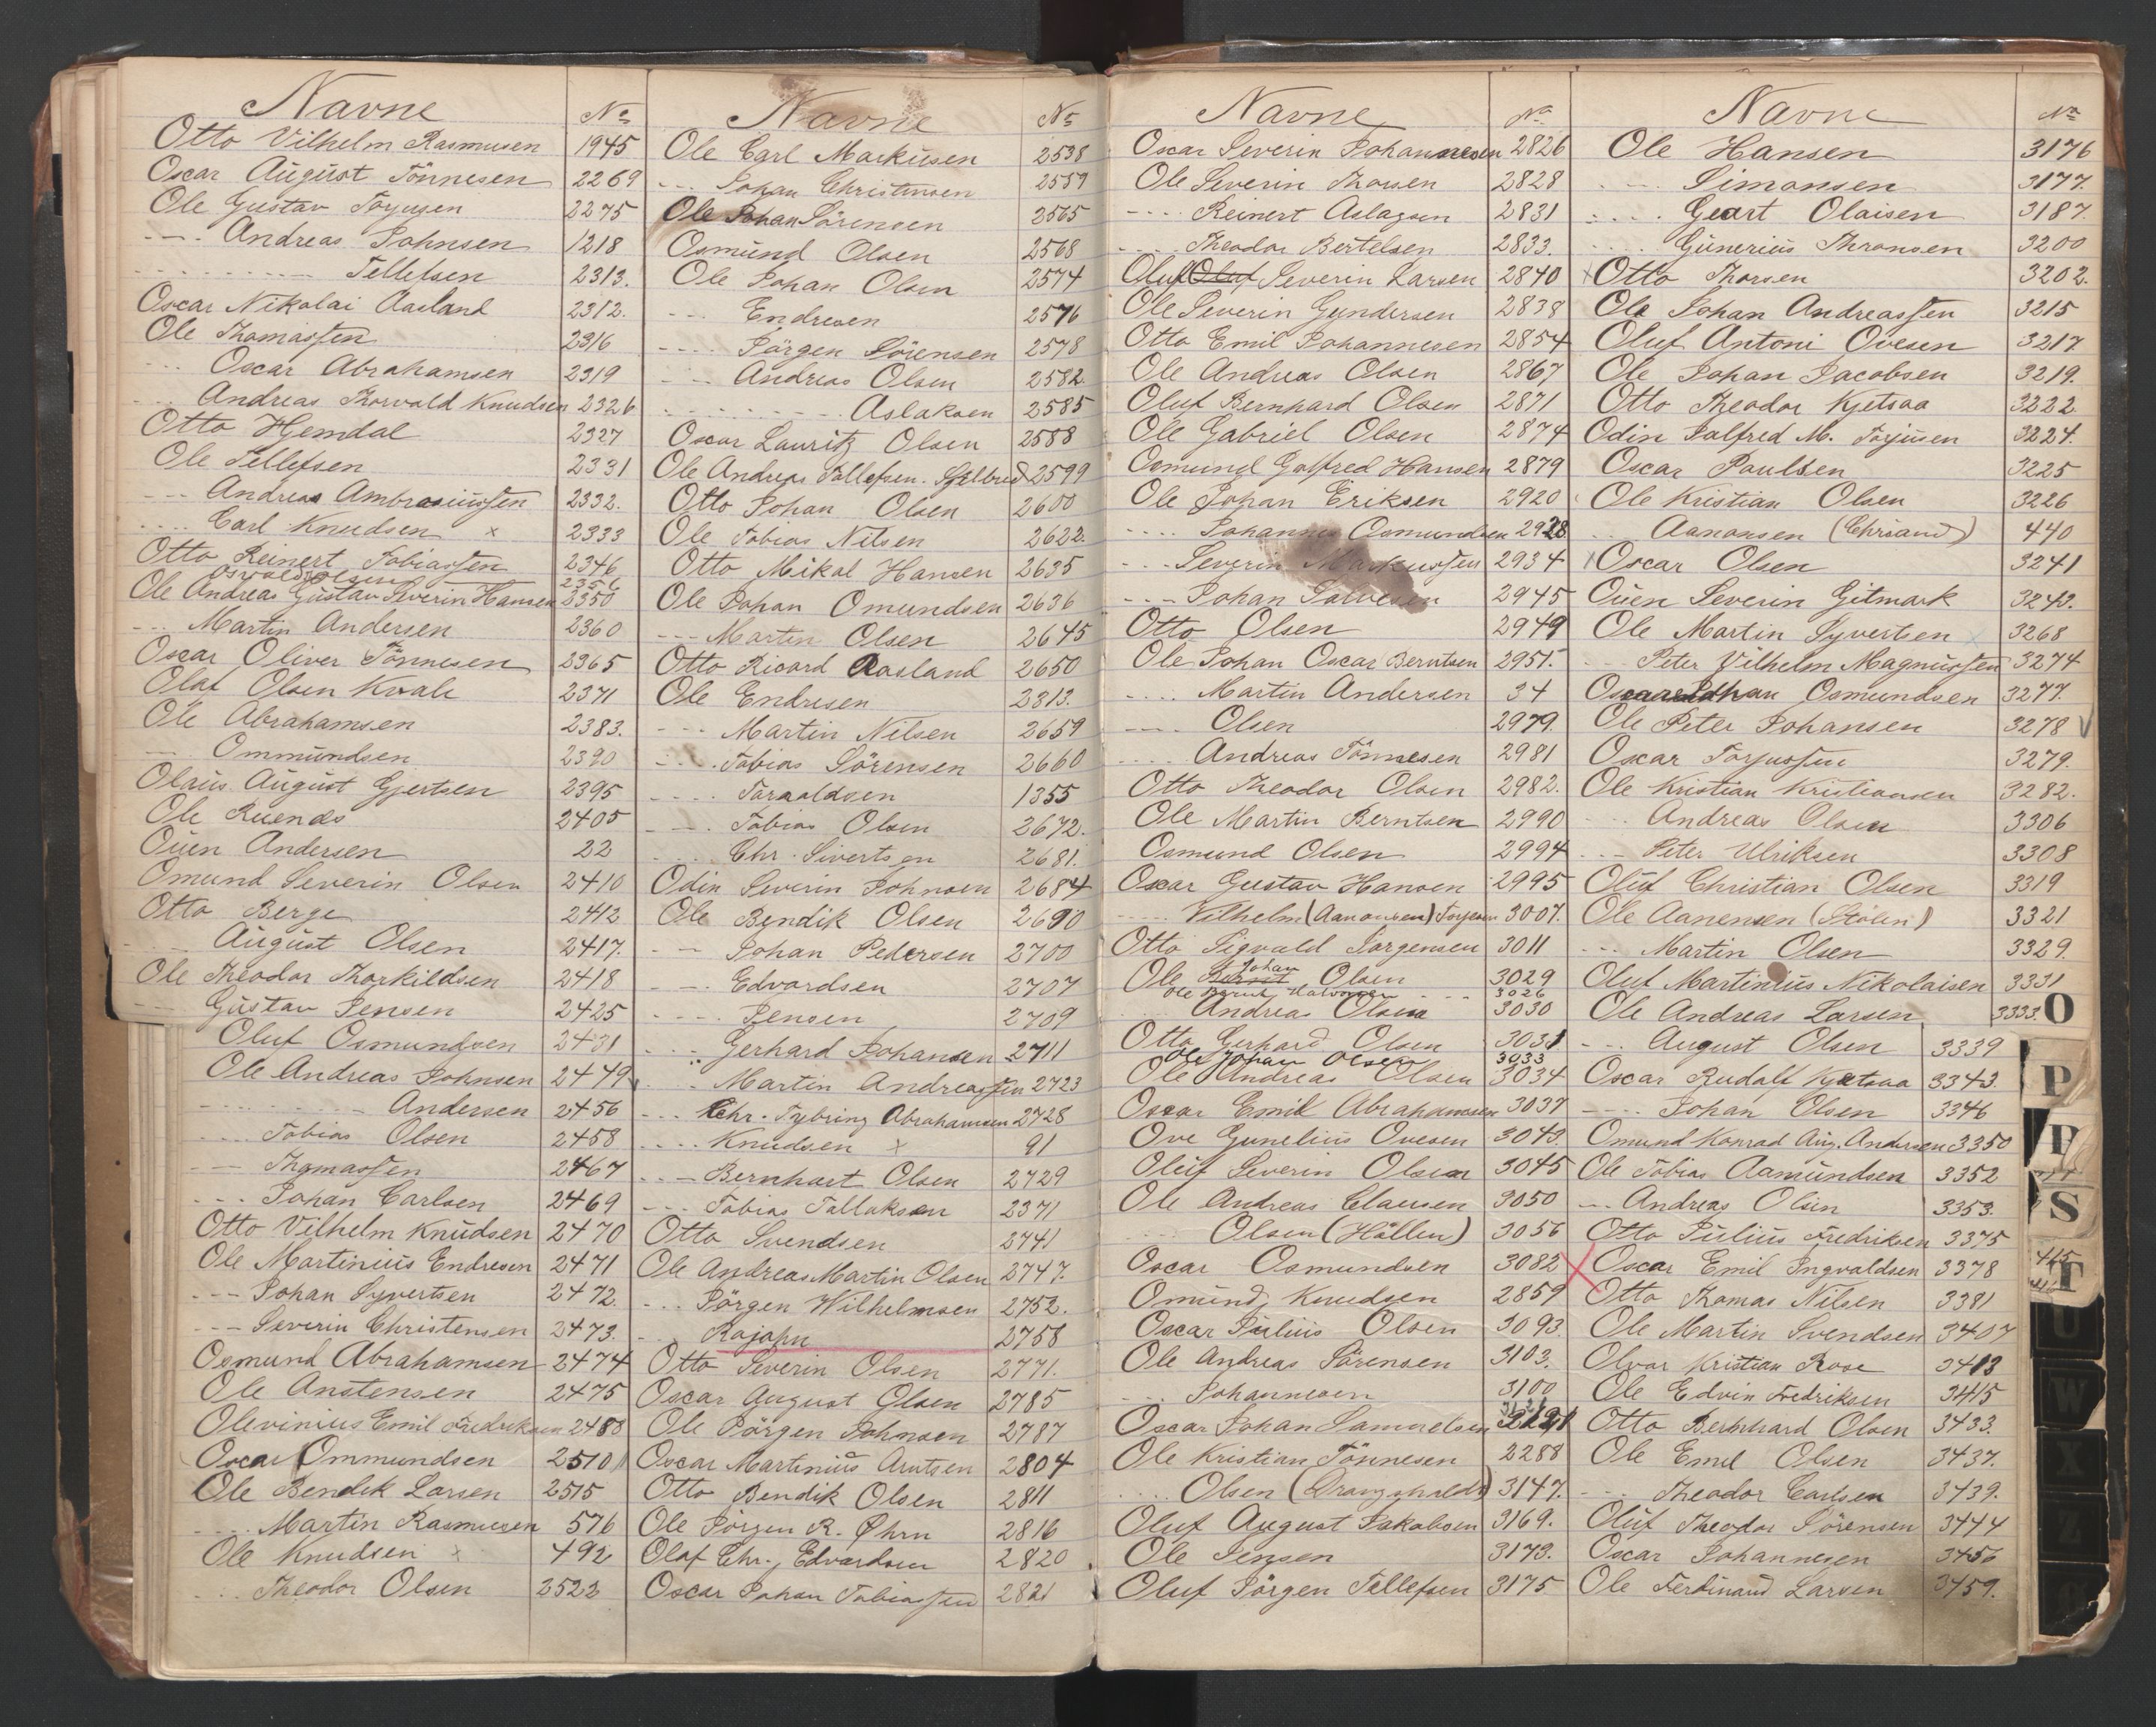 Navne No
Otto Vilhelm Rasmusen 1945
Oscar August Tönnesen 2269
Ole Gustav Torjusen 2275
--- Andreas Johnsen 1218
--- --- Tellefsen 2313.
Oscar Nikolai Aasland 2312.
Ole Thomassen 2316
--- Oscar Abrahamsen 2319
--- Andreas Thorvald Knudsen 2326
Otto Hjemdal 2327
Ole Tellefsen 2331
--- Andreas Ambrosiussen 2332.
--- Carl Knudsen x 2333
Otto Reinert Tobiassen 2346
Osvald Olsen 2356
Ole Andreas Gustav Severin Hansen 2350
--- Martin Andersen 2360
Oscar Oliver Tönnesen 2365
Olaf Olsen Kvale 2371
Ole Abrahamsen 2383.
--- Ommundsen 2390
Olaus August Gjertsen 2395
Ole Ruenes 2405
Ouen Andersen 22
Omund Severin Olsen 2410
Otto Berge 2412
--- August Olsen 2417.
Ole Theodor Thorkildsen 2418
--- Gustav Jensen 2425
Oluf Osmundsen 2431
Ole Andreas Johnsen 2449
--- --- Andersen 2456
--- Tobias Olsen 2458
--- Thomassen 2467
--- Johan Carlsen 2469
Otto Vilhelm Knudsen 2470
Ole Martinius Endresen 2471
--- Johan Syvertsen 2472.
--- Severin Christensen 2473.
Osmund Abrahamsen 2474
Ole Anstensen 2475
Olevinius Emil Fredriksen 2488
Oscar Ommundsen 2510
Ole Bendik Larsen 2515
--- Martin Rasmusen 576
Ole Knudsen x 492
--- Theodor Olsen 2522
Navne No
Ole Carl Markusen 2538
--- Johan Christensen 2559
Ole Johan Sörensen 2565
Osmund Olsen 2568
Ole Johan Olsen 2574
--- Endresen 2576
--- Jörgen Sörensen 2578
--- Andreas Olsen 2582.
--- --- Aslaksen 2585
Oscar Lauritz Olsen 2588
Ole Andreas Tollefsen 2599
Otto Johan Olsen 2600
Ole Tobias Nilsen 2622.
Otto Mikal Hansen 2635
Ole Johan Omundsen 2636
--- Martin Olsen 2645
Otto Ricard Aasland 2650
Ole Endresen 2313.
--- Martin Nilsen 2659
--- Tobias Sörensen 2660
--- Taraldsen 1355
--- Tobias Olsen 2672.
--- Chr. Sivertsen 2681.
Odin Severin Johnsen 2684
Ole Bendik Olsen 2690
--- Johan Pedersen 2700
--- Edvardsen 2707
--- Jensen 2709
--- Gerhard Johansen 2711
--- Martin Andreassen 2723
--- Chr. Fybring Abrahamsen 2728
--- Knudsen x 91
--- Bernhart Olsen 2729
--- Tobias Tallaksen 2371
Otto Svendsen 2741
Ole Andreas Martin Olsen 2747.
--- Jörgen Wilhelmsen 2752.
--- Rajahn 2758
Otto Severin Olsen 2771.
Oscar August Olsen 2785
Ole Jörgen Johnsen 2787
Oscar Martinius Arntsen 2804
Otto Bendik Olsen 2811
Ole Jörgen R. Öhrn 2816
Olaf Chr. Edvardsen 2820
Oscar Johan Tobiassen 2821
Navne No
Oscar Severin Johannesen 2826
Ole Severin Thorsen 2828
--- Reinert Aslagsen 2831
--- Theodor Bertelsen 2833.
Oluf Oluf Severin Larsen 2840
Ole Severin Gundersen 2838
Otto Emil Johannesen 2854
Ole Andreas Olsen 2867
Oluf Bernhard Olsen 2871
Ole Gabriel Olsen 2874
Osmund Galfred Hansen 2879
Ole Johan Eriksen 2920
--- Johannes Osmundsen 2928
--- Severin Markussen 2934
--- Johan Salvesen 2945
Otto Olsen 2949
Ole Johan Oscar Berntsen 2951.
--- Martin Andersen 34
--- Olsen 2979.
--- Andreas Tönnesen 2981
Otto Theodor Olsen 2982.
Ole Martin Berntsen 2990
Osmund Olsen 2994
Oscar Gustav Hansen 2995
--- Vilhelm (Aanonsen) Torjesen 3007.
Otto Sigvald Jörgensen 3011
Ole Johan Olsen 3029
Ole Bernt Halvorsen --- 3026
--- Andreas Olsen 3030
Otto Gerhard Olsen 3031
Ole Johan Olsen 3033
Ole Andreas Olsen 3034
Oscar Emil Abrahamsen 3037
Ove Gunelius Ovesen 3043.
Oluf Severin Olsen 3045
Ole Andreas Clausen 3050
--- Olsen (Hållen) 3056
Oscar Osmundsen 3082
Omund Knudsen 2859
Oscar Julius Olsen 3093.
Ole Andreas Sörensen 3103.
--- Johannesen 3100
Oscar Johan Samuelsen 3121
Ole Kristian Tönnesen 2288
--- Olsen (Drangsholdt) 3147.
Oluf August Jakobsen 3169.
Ole Jensen 3173.
Oluf Jörgen Tellefsen 3175
Navne No
Ole Hansen 3176
--- Simonsen 3177.
--- Geart Olaisen 3187.
--- Gunerius Thronsen 3200
x Otto Thorsen 3202.
Ole Johan Andreassen 3215
Oluf Antoni Ovesen 3217
Ole Johan Jacobsen 3219.
Otto Theodor Kjetsaa 3222
Odin Jalfred M. Torjusen 3224.
Oscar Paulsen 3225
Ole Kristian Olsen 3226
--- Aanonsen (Chrsand) 440
Oscar Olsen 3241
Ouen Severin Gitmark 3243.
Ole Martin Syvertsen x 3268
--- Peter Vilhelm Magnussen 3274
Oscar Johan Osmundsen 3277.
Ole Peter Johansen 3278 V
Oscar Torjussen 3279.
Ole Kristian Kristiansen 3282.
--- Andreas Olsen 3306
--- Peter Ulriksen 3308
Oluf Christian Olsen 3319
Ole Aanensen (Stölen) 3321
--- Martin Olsen 3329.
Oluf Martinius Nikolaisen 3331
Ole Andreas Larsen 3333.
--- August Olsen 3339
Oscar Rudolf Kjetsaa 3343.
--- Johan Olsen 3346
Omund Konrad Aug. Andersen 3350
Ole Tobias Aamundsen 3352
--- Andreas Olsen 3353.
Otto Julius Fredriksen 3375
Oscar Emil Ingvaldsen 3378
Otto Thomas Nilsen 3381
Ole Martin Svendsen 3407
Olvar Kristian Rose 3413
Ole Edvin Fredriksen 3415
Otto Bernhard Olsen 3433.
Ole Emil Olsen 3437.
--- Theodor Carlsen 3439.
Oluf Theodor Sörensen 3444
Oscar Johannesen 3456
Ole Ferdinand Larsen 3459.
O
P
S
T
U
W
X